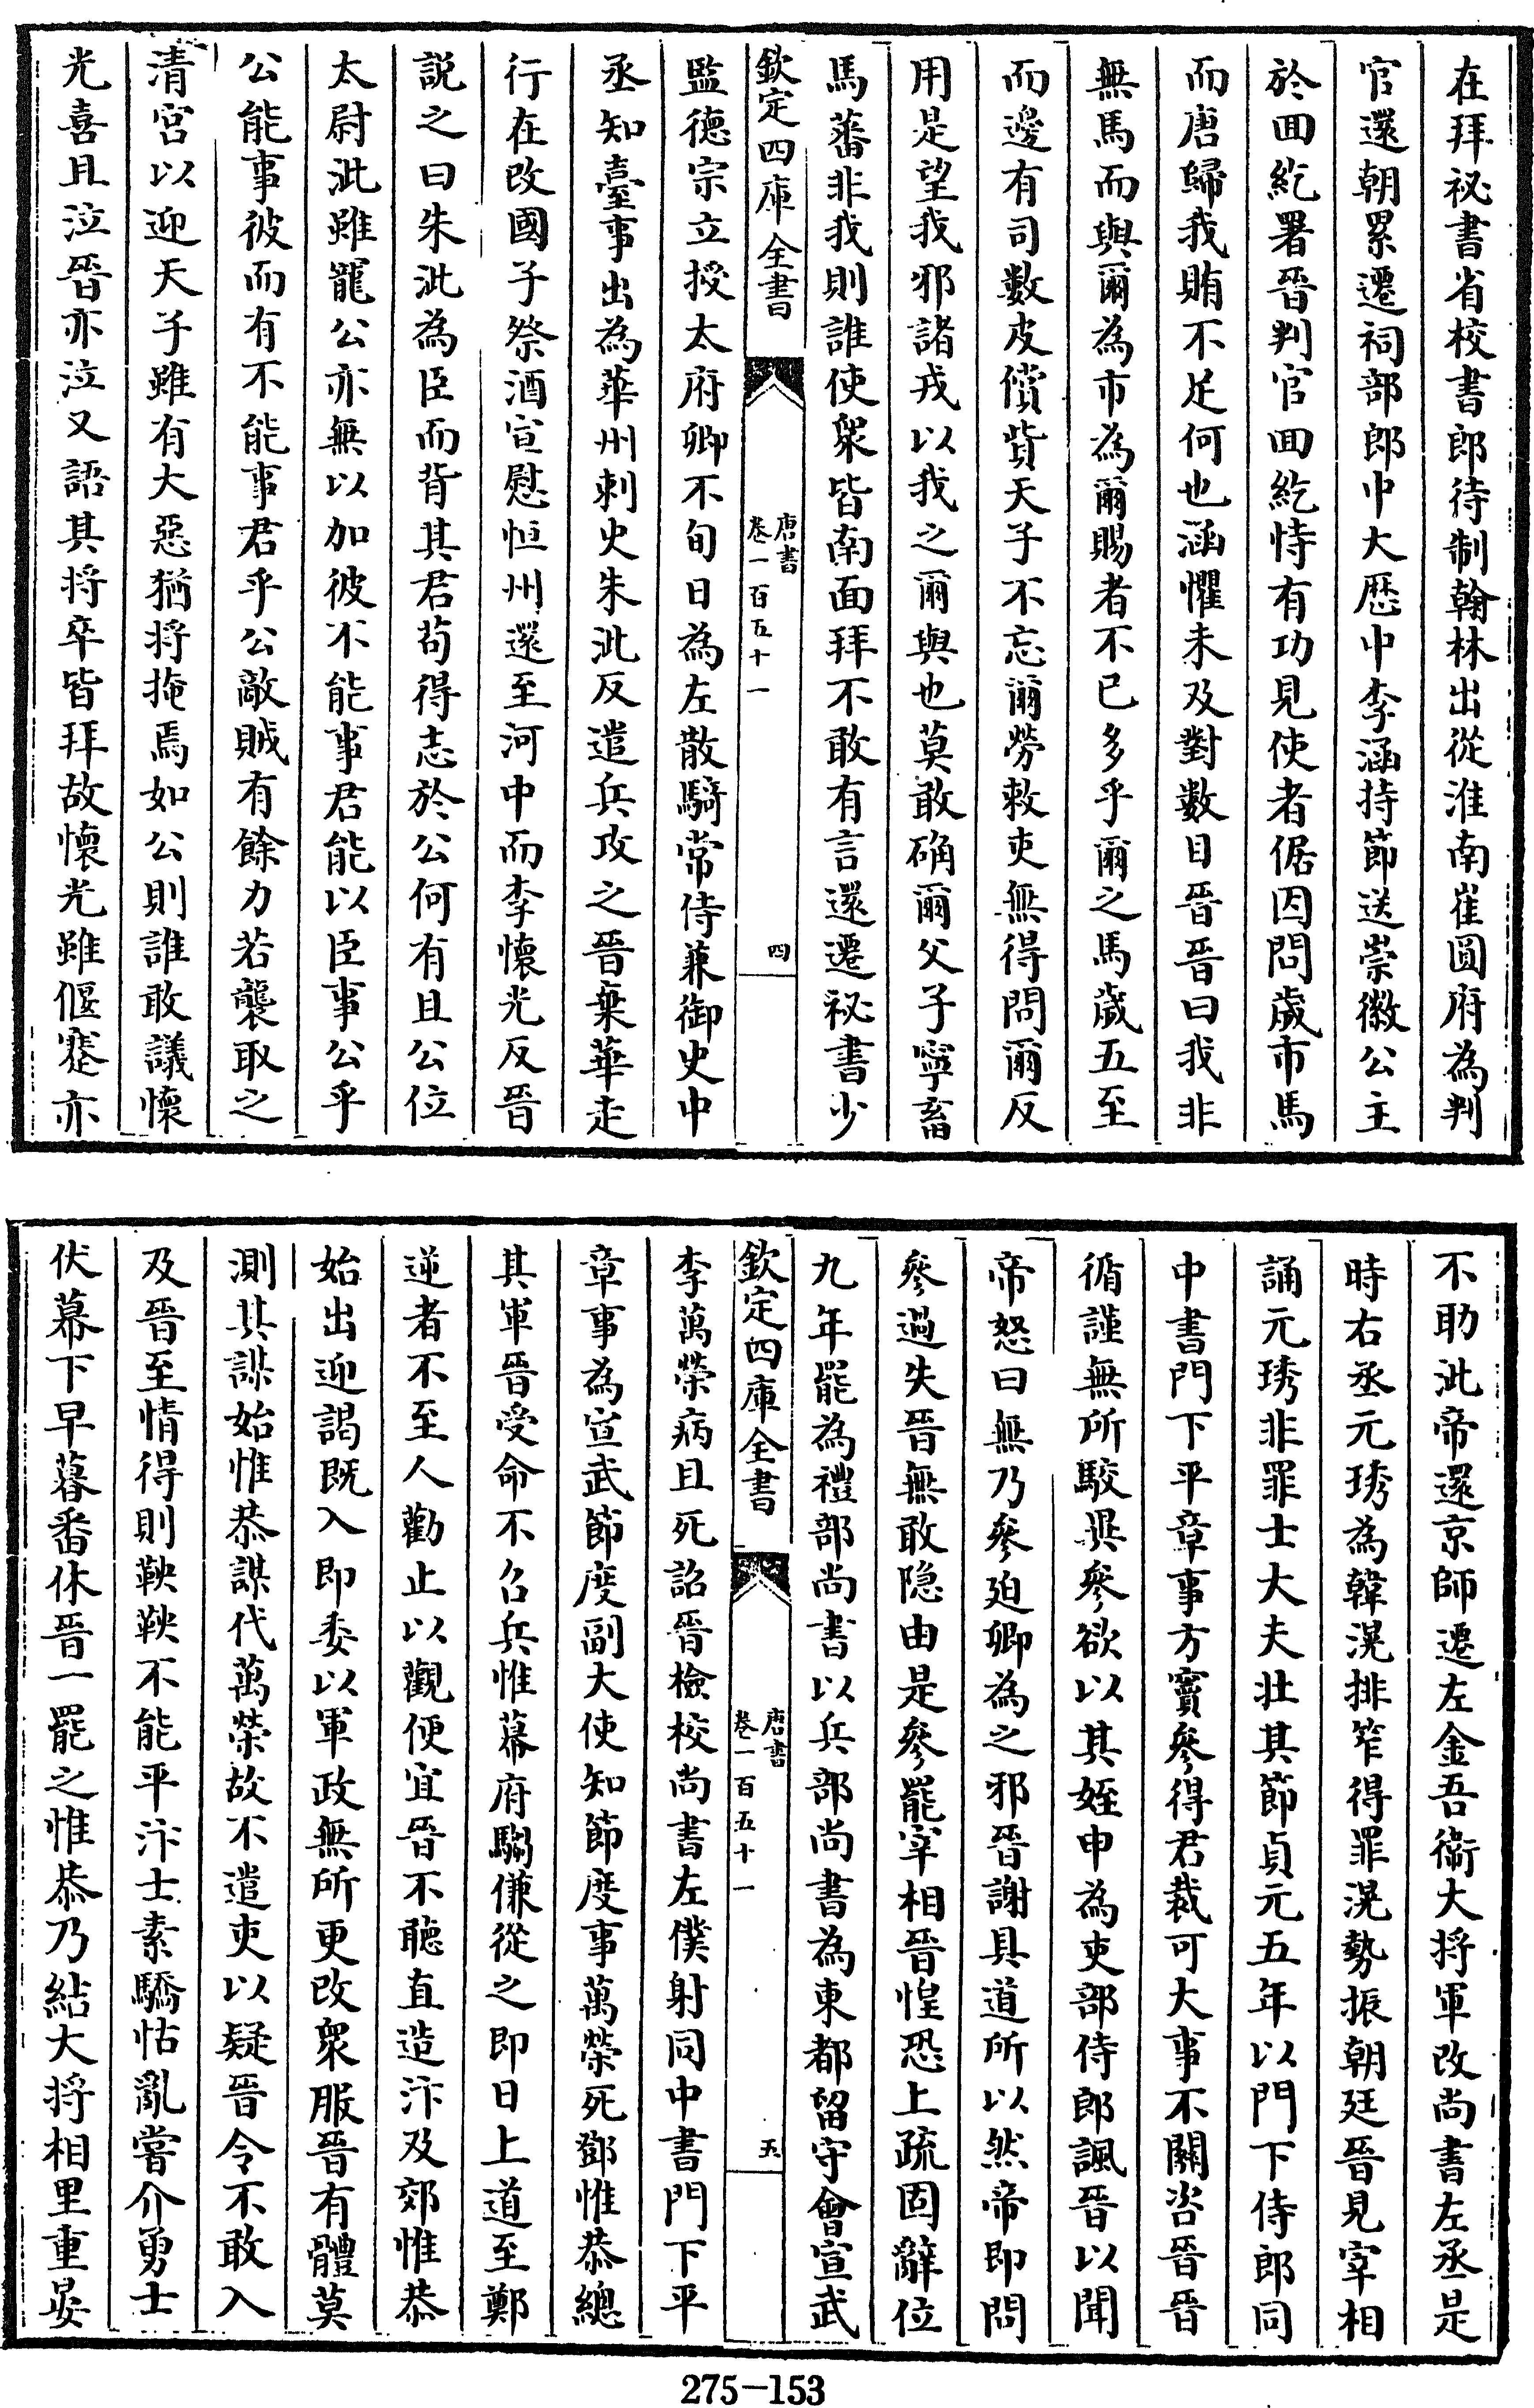 在拜祕書省校書郎待制翰林出從淮南崔圓府為判
官還朝累遷祠部郎中大厯中李涵持節送崇徽公主
於回紇署晉判官回紇恃有功見使者倨因問歲市馬
而唐歸我賄不足何也涵懼未及對數目晉晉曰我非
無馬而與爾為市為爾賜者不已多乎爾之馬歲五至
而邊有司數皮償貲天子不忘爾勞敕吏無得問爾反
用是望我邪諸戎以我之爾與也莫敢确爾父子寧畜
馬蕃非我則誰使衆皆南面拜不敢有言還遷祕書少
欽定四庫全書
唐書
卷一百五十一
四
監德宗立授太府卿不旬日為左散騎常侍兼御史中
丞知臺事出為華州刺史朱泚反遣兵攻之晉棄華走
行在改國子祭酒宣慰恒州還至河中而李懷光反晉
説之曰朱泚為臣而背其君茍得志於公何有且公位
太尉泚雖寵公亦無以加彼不能事君能以臣事公乎
公能事彼而有不能事君乎公敵賊有餘力若襲取之
清宮以迎天子雖有大惡猶將掩焉如公則誰敢議懷
光喜且泣晉亦泣又語其將卒皆拜故懷光雖偃蹇亦
不助泚帝還京師遷左金吾衛大將軍改尚書左丞是
時右丞元琇為韓滉排笮得罪滉勢振朝廷晉見宰相
誦元琇非罪士大夫壯其節貞元五年以門下侍郎同
中書門下平章事方竇參得君裁可大事不關咨晉晉
循謹無所駮異參欲以其姪申為吏部侍郎諷晉以聞
帝怒曰無乃參廹卿為之邪晉謝具道所以然帝即問
參過失晉無敢隐由是參罷宰相晉惶恐上疏固辭位
九年罷為禮部尚書以兵部尚書為東都留守會宣武
欽定四庫全書
唐書
卷一百五十一
五
李萬榮病且死詔晉檢校尚書左僕射同中書門下平
章事為宣武節度副大使知節度事萬榮死鄧惟恭總
其軍晉受命不召兵惟幕府騶傔從之即日上道至鄭
逆者不至人勸止以觀便宜晉不聽直造汴及郊惟恭
始出迎謁既入即委以軍政無所更改衆服晉有體莫
測其謀始惟恭謀代萬榮故不遣吏以疑晉令不敢入
及晉至情得則鞅鞅不能平汴士素驕怙亂嘗介勇士
伏幕下早暮番休晉一罷之惟恭乃結大將相里重晏
275-153